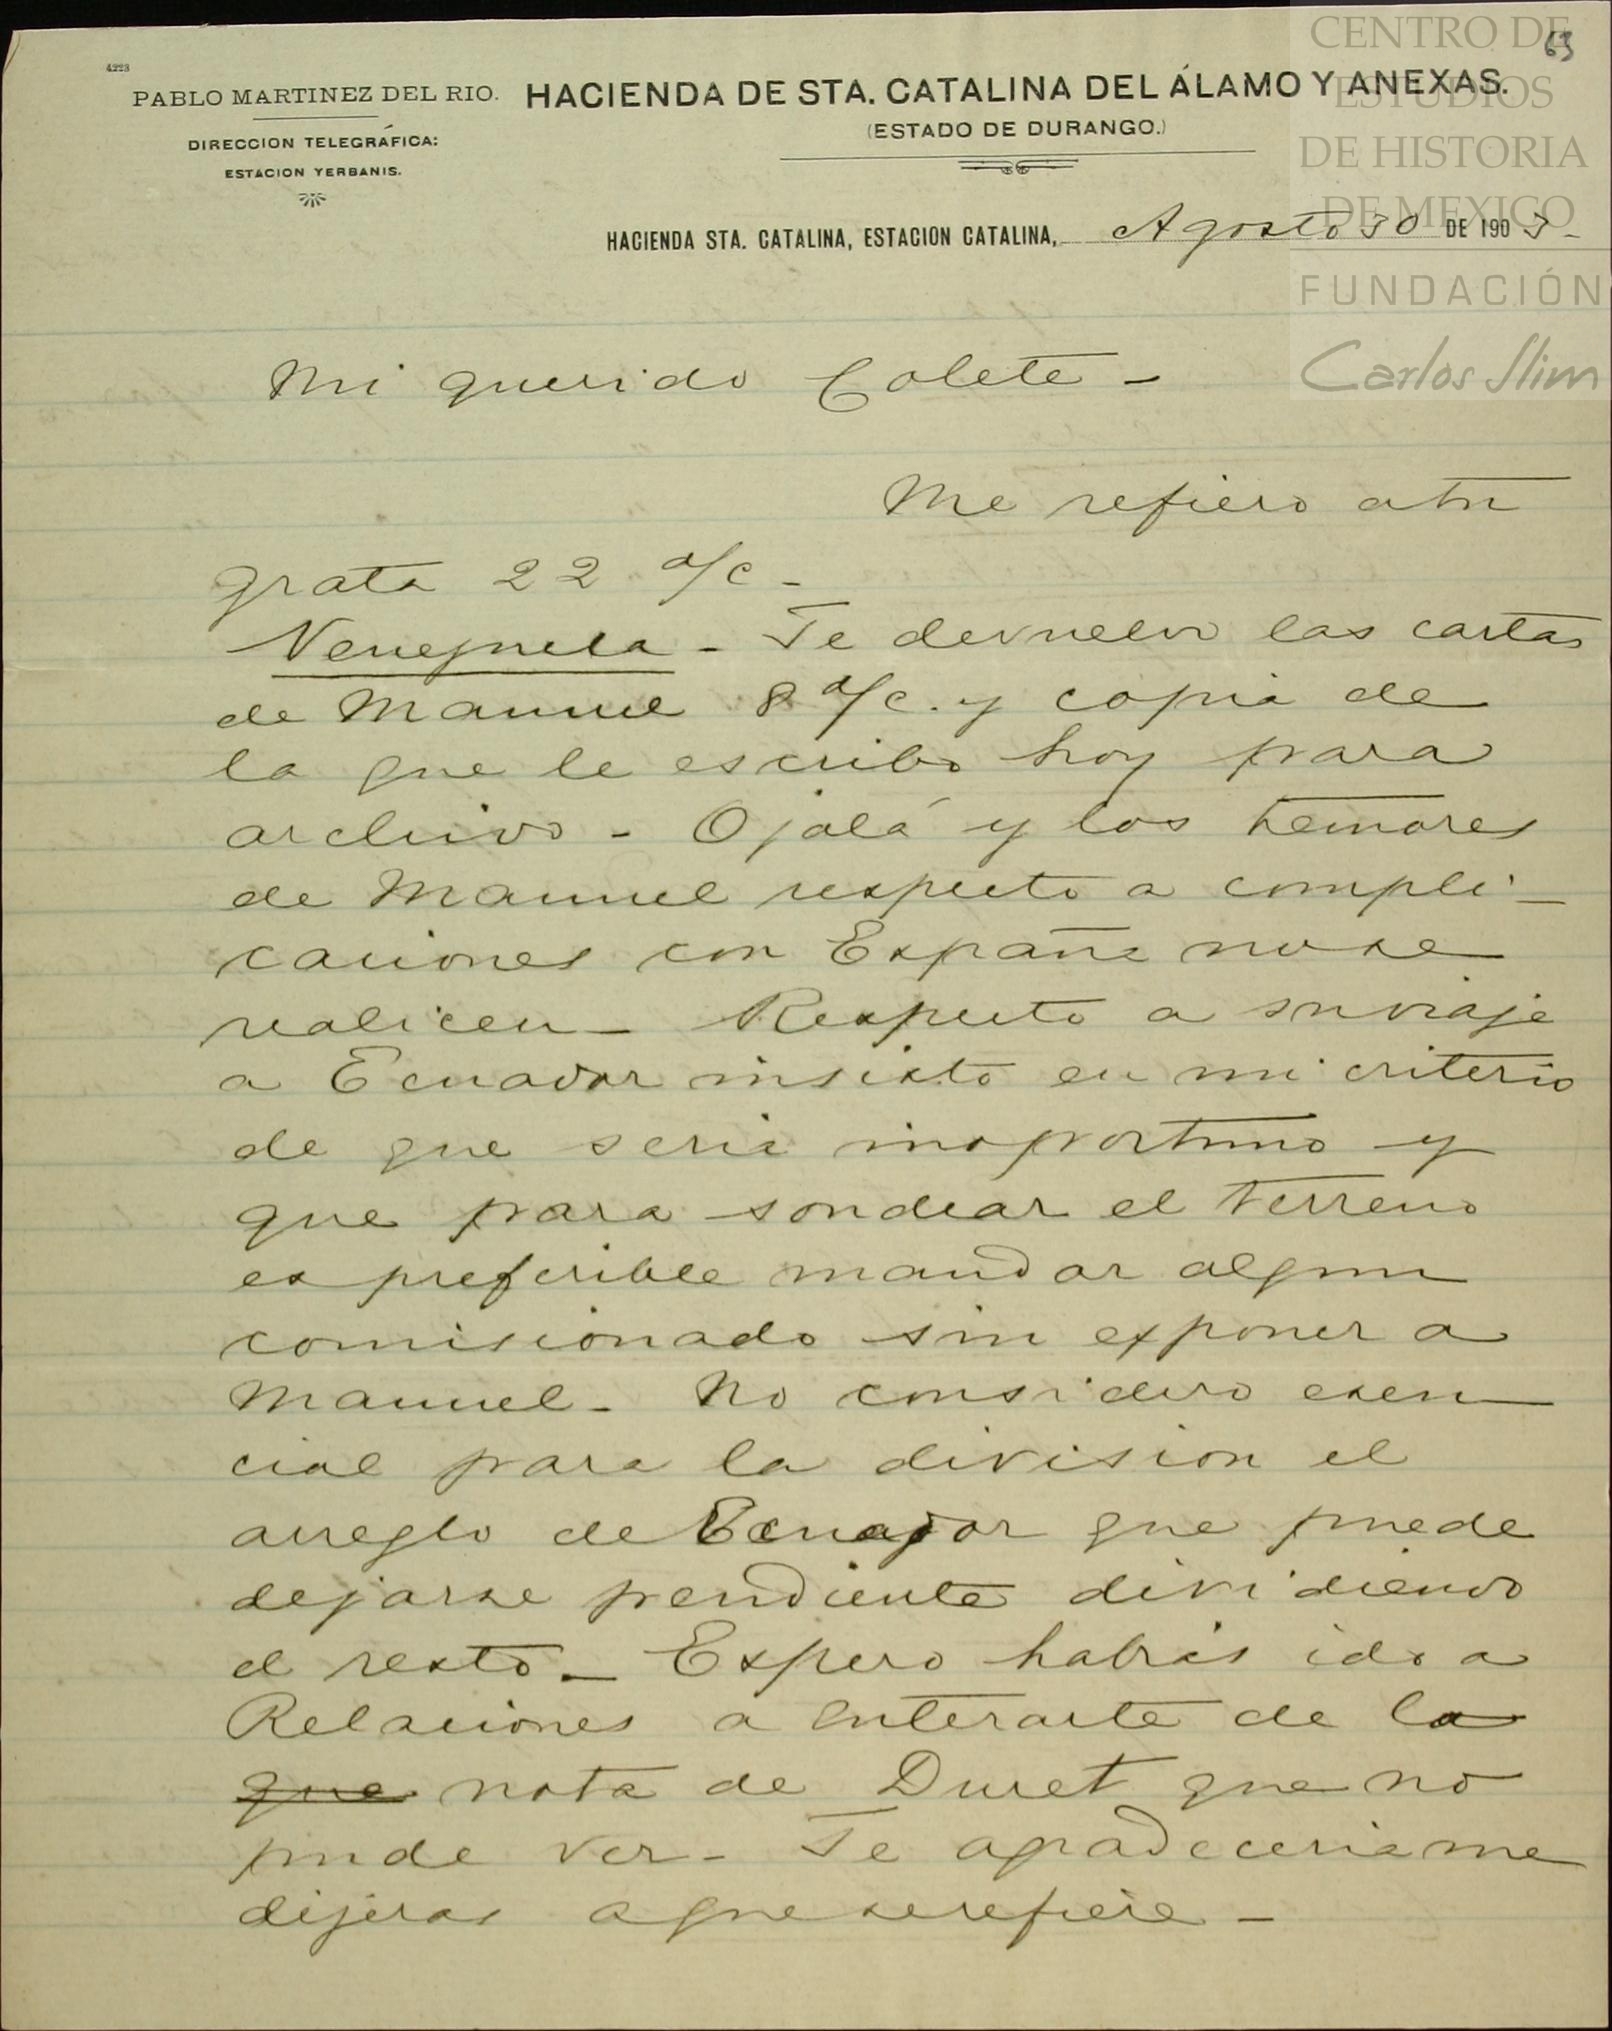 4223
63
CENTRO DE
ESTUDIOS
DE HISTORIA
DE MEXICO
FUNDACIÓN
Carlos Slim
PABLO MARTINEZ DEL RIO.
DIRECCION TELEGRÁFICA:
ESTACION YERBANIS.
HACIENDA DE STA. CATALINA DEL ÁLAMO Y ANEXAS.
(ESTADO DE DURANGO.)
HACIENDA STA. CATALINA, ESTACION CATALINA, Agosto 30 DE 1903-
Mi querido Colete -
Me refiero a tu
grata 22 a/c -
Venezuela - Te devuelvo las cartas
de Manuel 8 a/c. y copia de
la que le escribo hoy para
archivo - Ojalá y los temores
de Manuel respecto a compli-
caciones con España no se
realicen - Respecto a su viaje
a Ecuador insisto en mi criterio
de que seria inoportuno y
que para sondear el terreno
es preferible mandar algun
comisionado sin exponer a
Manuel - No considero esen-
cial para la division el
arreglo de Ecuador que puede
dejarse pendiente dividiendo
el resto - Espero habrás ido a
Relaciones a enterarte de la
que nota de Duret que no
pude ver - Te agradeceria me
dijeras a que se refiere -